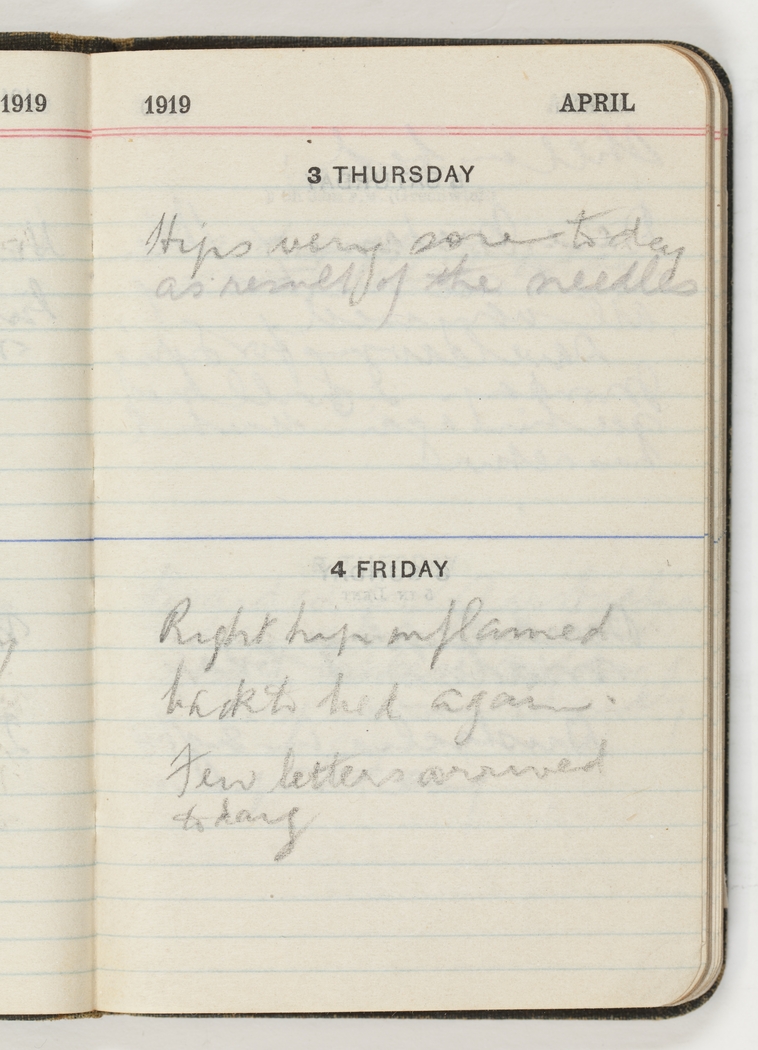 1919
1919 APRIL
3 THURSDAY
Hips very sore today
as result of the needles
4 FRIDAY
Right hip inflamed
back to bed again.
Few letters arrived
today